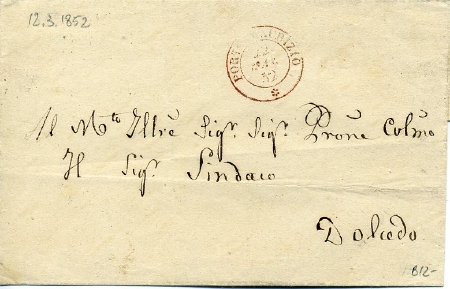 12.3.1852
PORTO MAURIZIO
12
MAR
52
Il Mto Illre Sigr. Sigr. Prone Colmo
Il Sigr. Sindaco
Dolcedo
812-